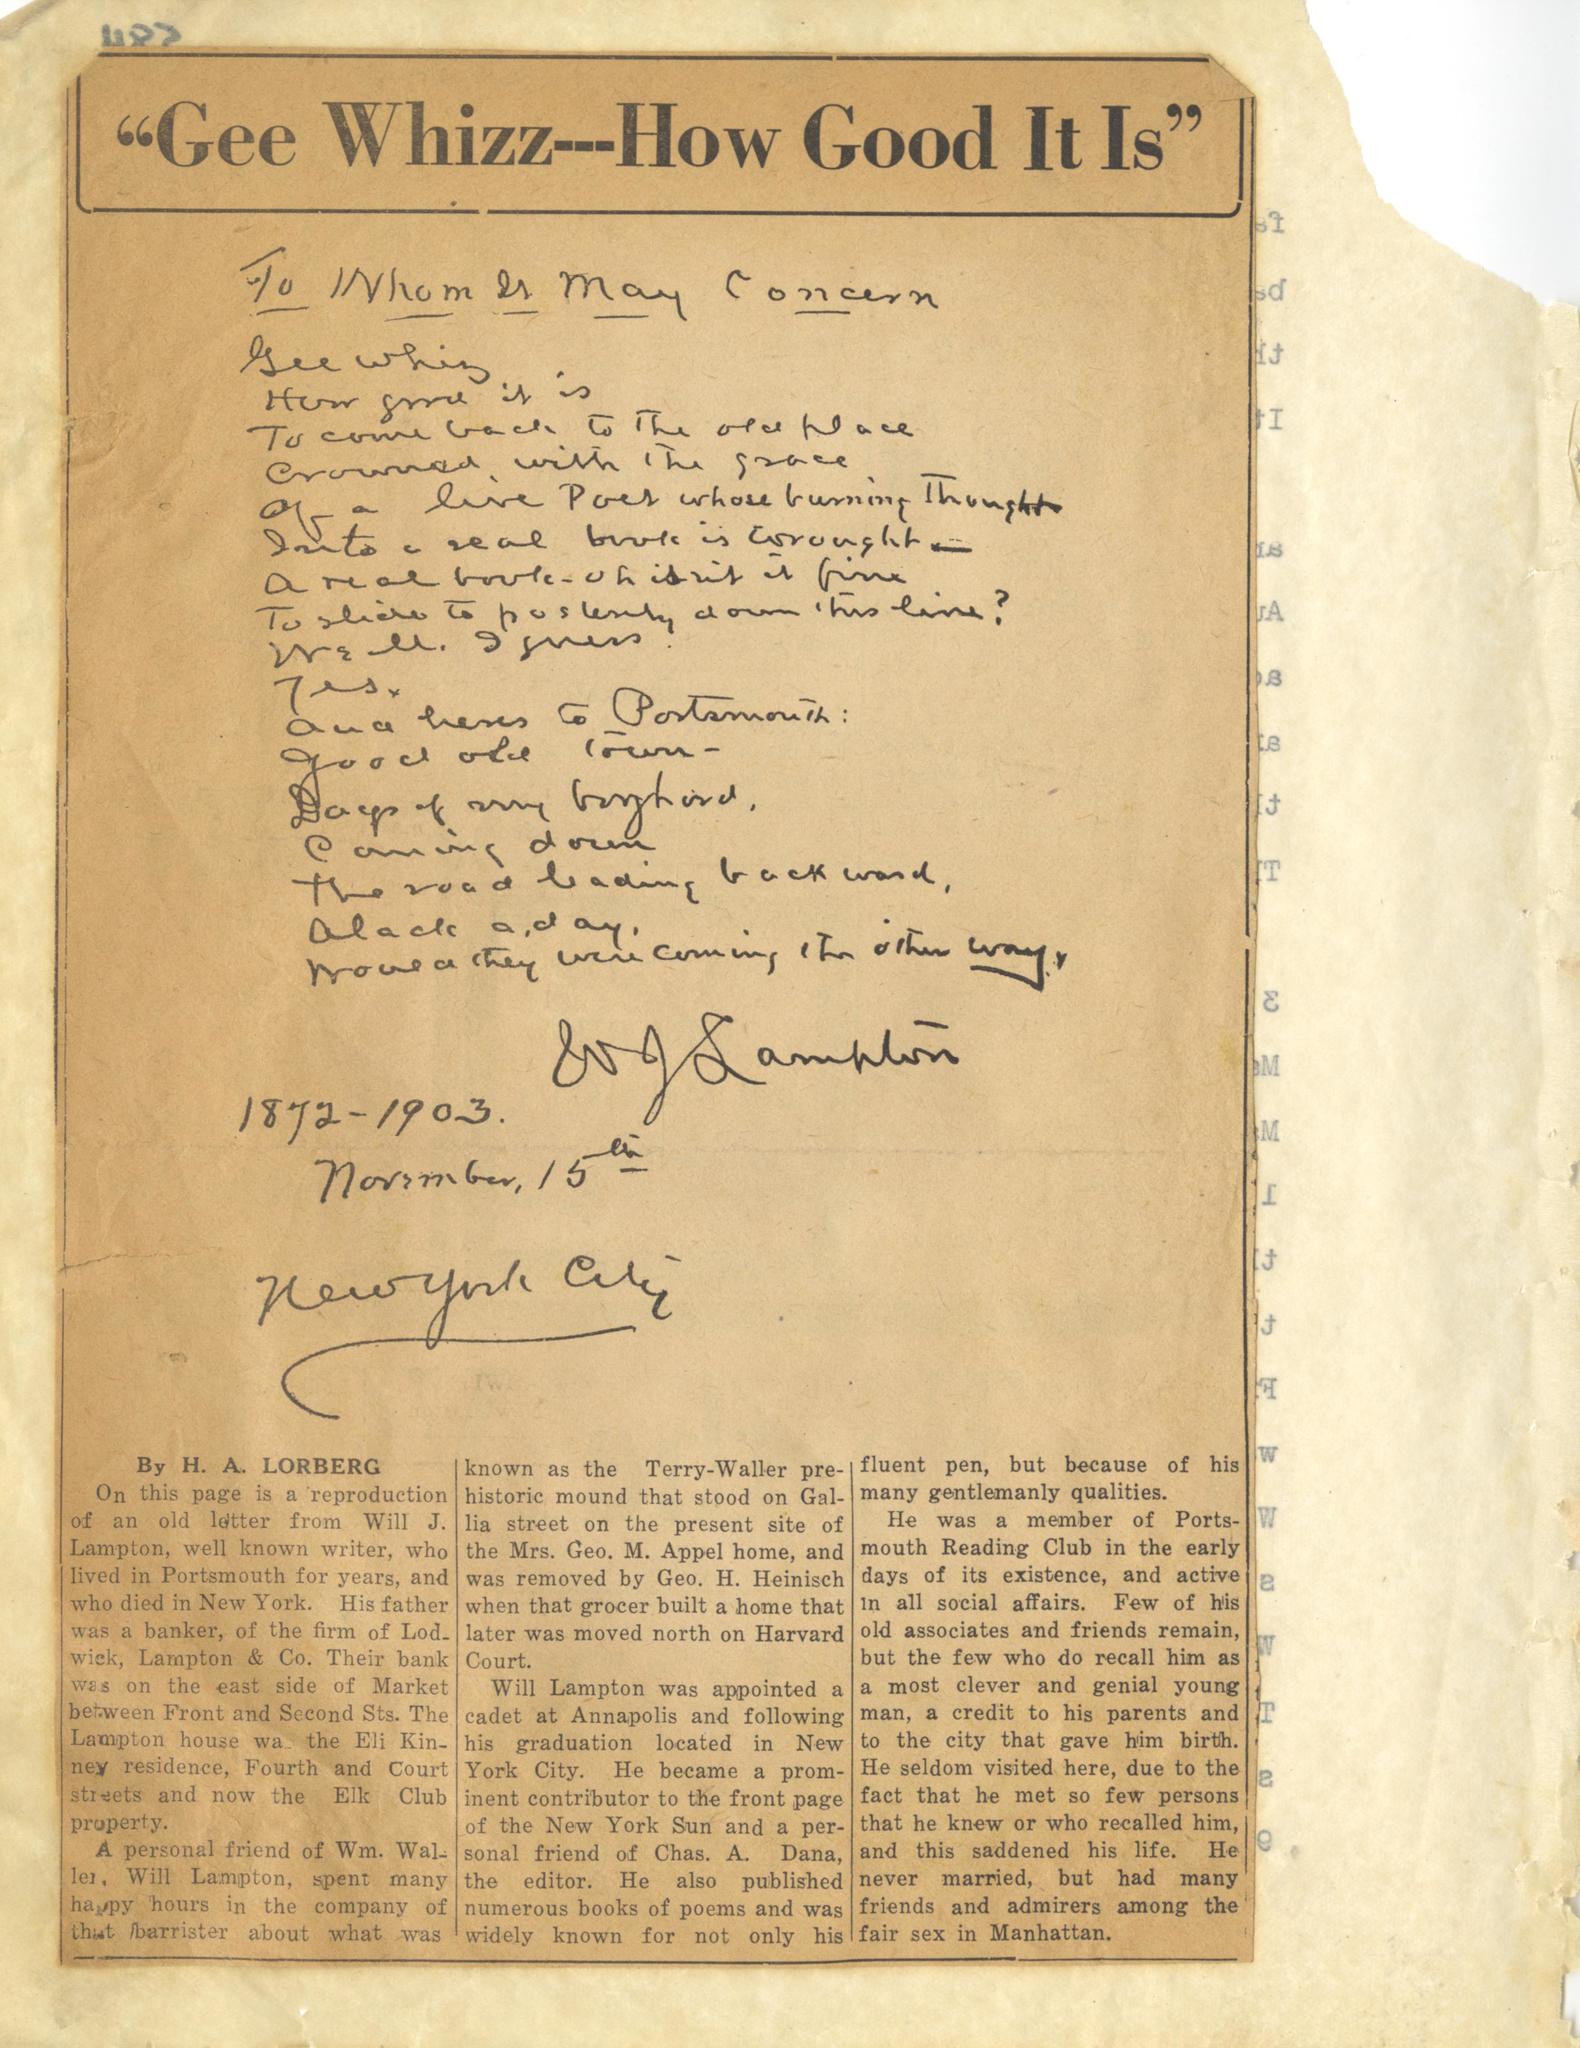 “Gee Whizz---How Good It Is”
To Whom It May Concern
Gee whiz
How good it is
To come back to the old place
Crowned with the grace
Of a live Poet whose burning Thought
Into a real book is wrought—
A real book - oh isn't it fine
To slide to posterity down this line?
Well. I guess.
Yes.
And heres to Portsmouth:
Good old Town-
Days of my boyhood,
Coming down
The road leading backward,
Alack a,day,
Would they were coming the other way.
W J Lampton
1872-1903.
November, 15th
New York City
By H. A. LORBERG
On this page is a reproduction
of an old letter from Will J.
Lampton, well known writer, who
lived in Portsmouth for years, and
who died in New York. His father
was a banker, of the firm of Lod-
wick, Lampton & Co. Their bank
was on the east side of Market
between Front and Second Sts. The
Lampton house wa the Eli Kin-
ney residence, Fourth and Court
streets and now the Elk Club
property.
A personal friend of Wm. Wal-
ler, Will Lampton, spent many
happy hours in the company of
that barrister about what was
known as the Terry-Waller pre-
historic mound that stood on Gal-
lia street on the present site of
the Mrs. Geo. M. Appel home, and
was removed by Geo. H. Heinisch
when that grocer built a home that
later was moved north on Harvard
Court.
Will Lampton was appointed a
cadet at Annapolis and following
his graduation located in New
York City. He became a prom-
inent contributor to the front page
of the New York Sun and a per-
sonal friend of Chas. A. Dana,
the editor. He also published
numerous books of poems and was
widely known for not only his
fluent pen, but because of his
many gentlemanly qualities.
He was a member of Ports-
mouth Reading Club in the early
days of its existence, and active
in all social affairs. Few of his
old associates and friends remain,
but the few who do recall him as
a most clever and genial young
man, a credit to his parents and
to the city that gave him birth.
He seldom visited here, due to the
fact that he met so few persons
that he knew or who recalled him,
and this saddened his life. He
never married, but had many
friends and admirers among the
fair sex in Manhattan.